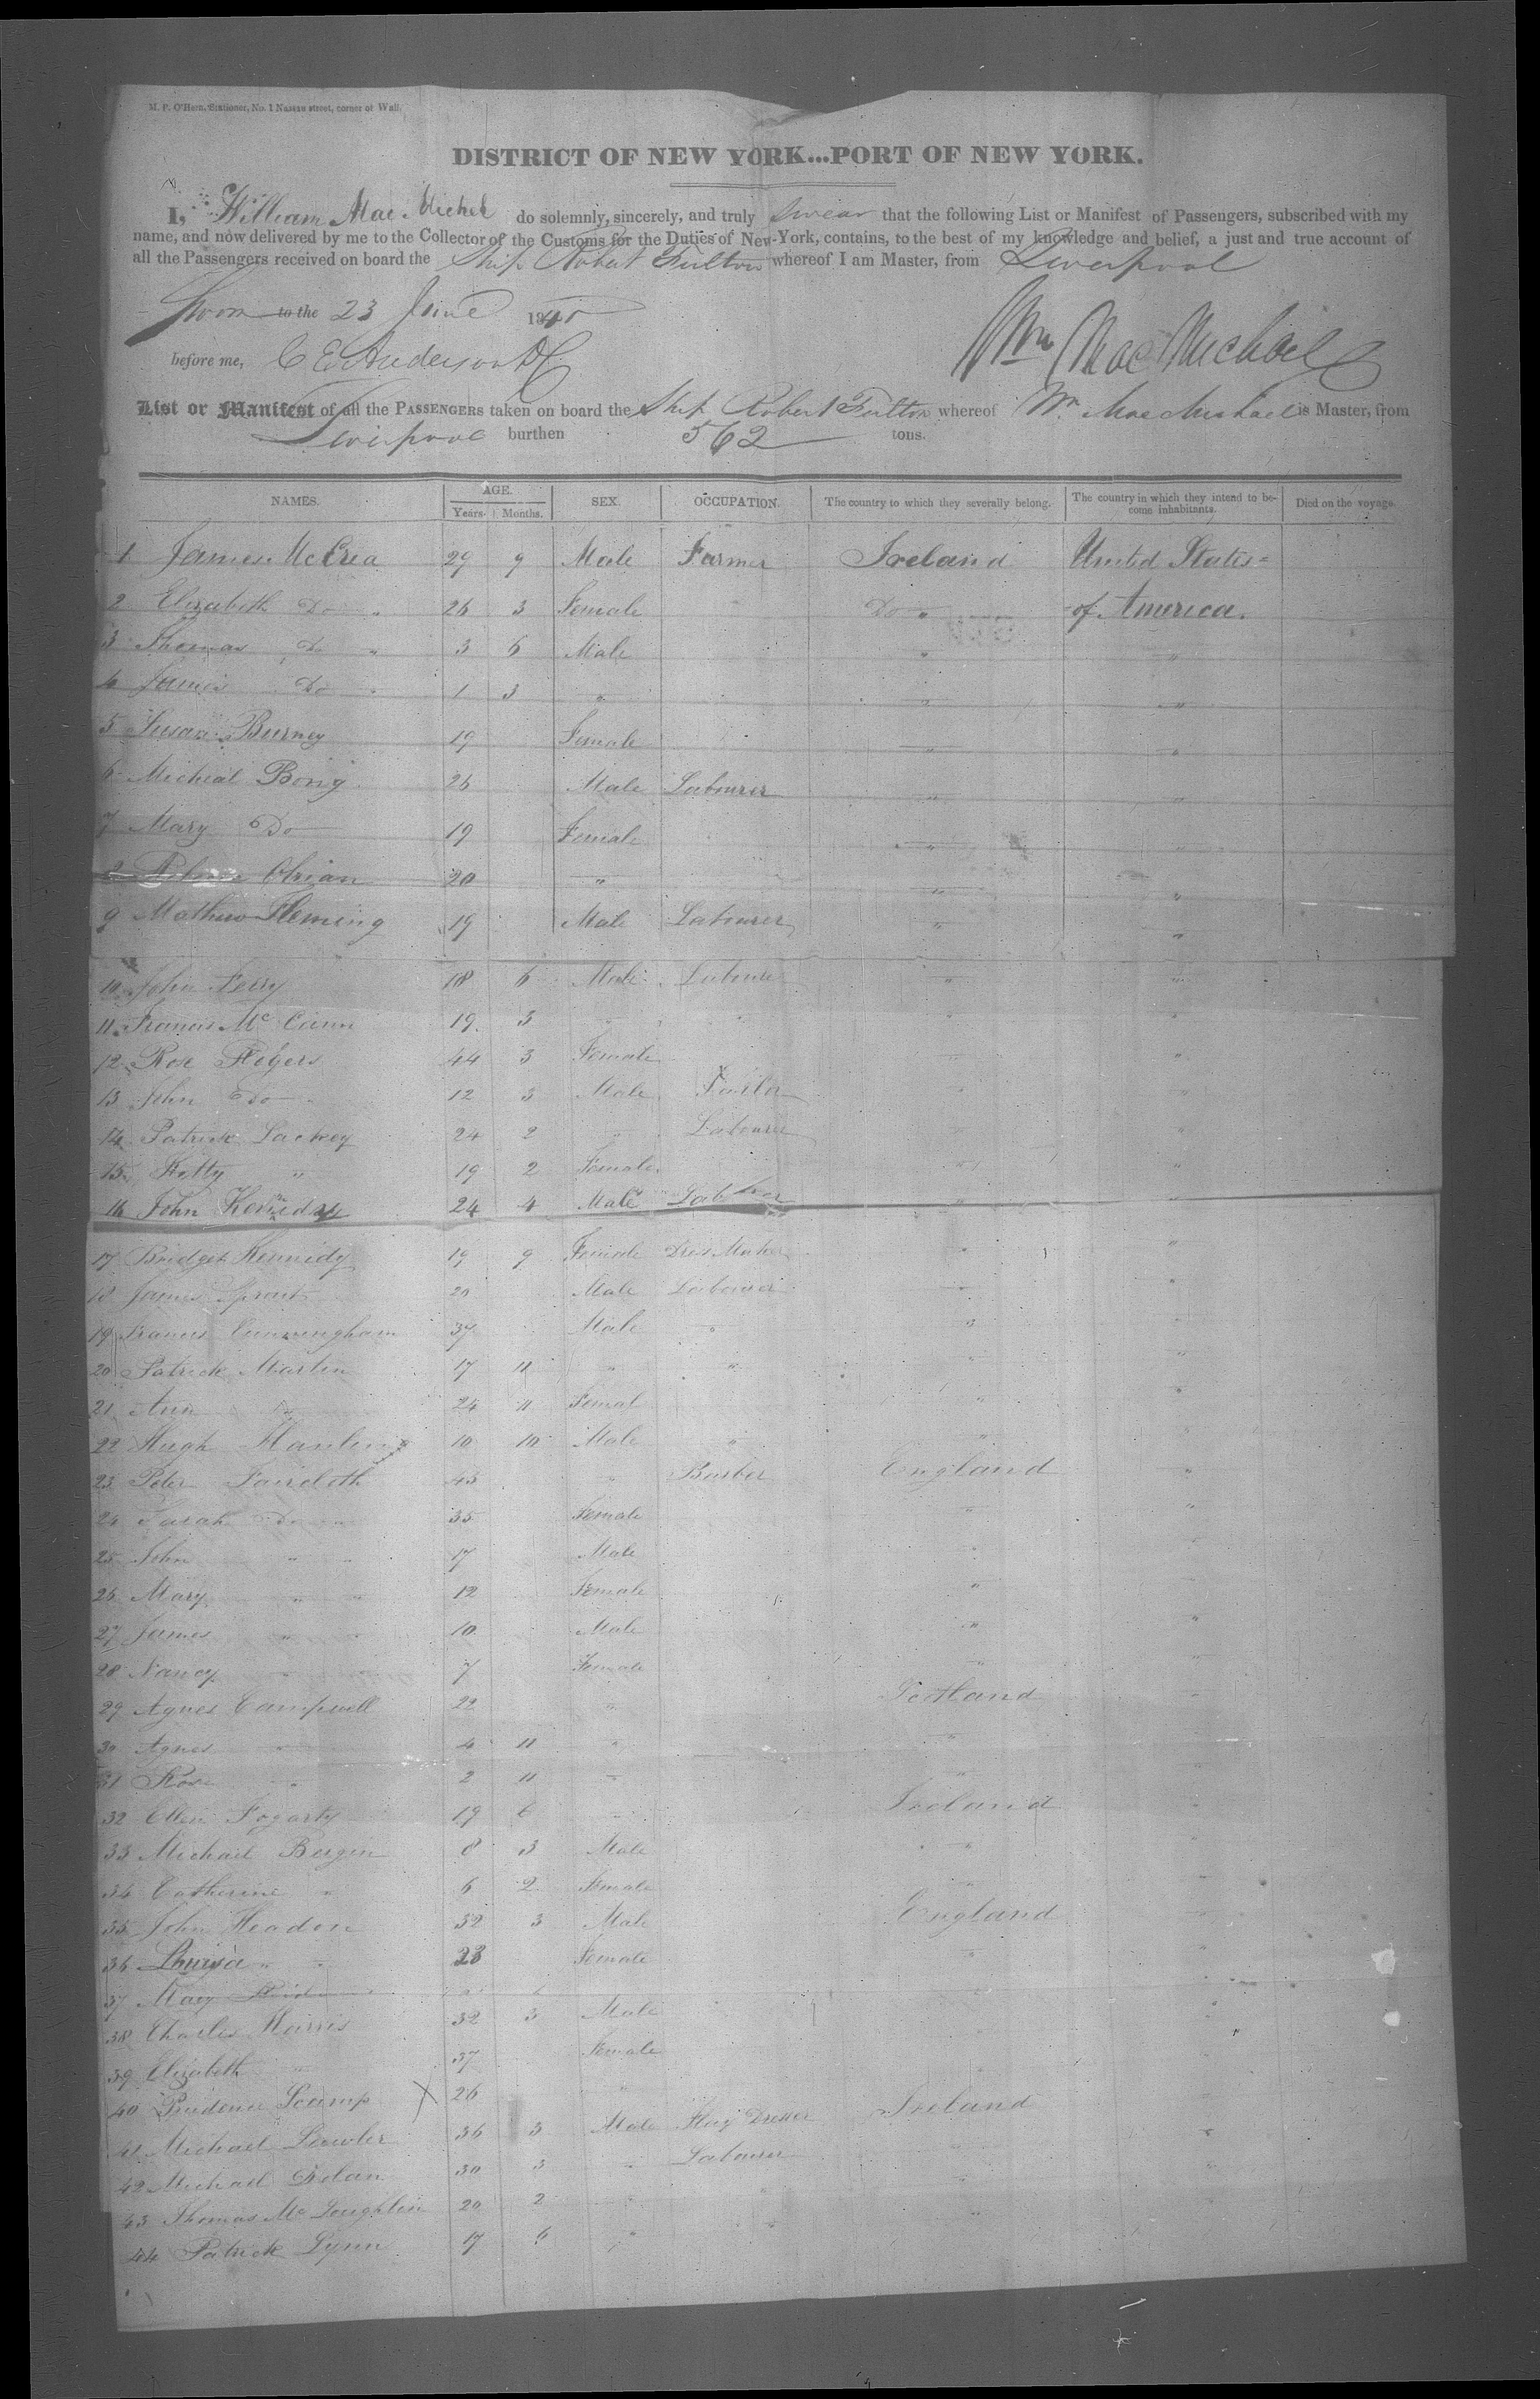 M. P. O'Hern, Stationer, No. 1 Nassau street, corner of Wall.
DISTRICT OF NEW YORK...PORT OF NEW YORK.
I, William Mac Michel do solemnly, sincerely, and truly swear that the following List or Manifest of Passengers, subscribed with my
name, and now delivered by me to the Collector of the Customs for the Duties of New-York, contains, to the best of my knowledge and belief, a just and true account of
all the Passengers received on board the Ship Robert Fulton whereof I am Master, from Liverpool
Sworn to the 23 June 1840
Wm MacMichael
before me, C E Anderson DC
List or Manifest of all the PASSENGERS taken on board the Ship Robert Fulton whereof Wm MacMichael is Master, from
Liverpool burthen 562 tons.
NAMES. AGE. SEX. OCCUPATION. The country to which they severally belong. The country in which they intend to be-
Years. Months. come inhabitants. Died on the voyage.
1 James McCrea 29 9 Male Farmer Ireland United States=
2 Elizabeth Do " 26 3 Female Do " of America.
3 Thomas Do " 3 6 Male " "
4 James Do 1 3 " " "
5 Susan Burney 19 Female " "
6 Micheal 26 Male Labourer " "
7 Mary Do 19 Female " "
8 Obrian 20 " " "
9 Mathew Fleming 19 Male Labourer " "
10 John 18 6 Male Laboure " "
11 Francis Mc Cann 19 3 " " " "
12 Rose Rogers 44 3 Female " "
13 John Do 12 3 Male Tailor " "
14 Patrick Lackey 24 2 " Labourer " "
15 " 19 2 Female " "
16 John Kennedy 24 4 Male Labourer " "
17 Bridget Kennidy 19 9 Female Dres Maker " "
18 James 20 Male Labourer " "
19 Francis Cunningham 37 Male " " "
20 Patrick Martin 17 11 " " " "
21 Ann " 24 11 Femal " "
22 Hugh Hanlin 10 10 Male " " "
23 Peter Faircloth 43 " Barber England "
24 Sarah Do " 35 Female " "
25 John " " 17 Male " "
26 Mary " " 12 Female " "
27 James " " 10 Male " "
28 Nancy " " 7 Female " "
29 Agnes Campwell 22 " Scotland "
30 Agnes " 4 11 " "
31 Rose " 2 11 " "
32 Ellen Fogarty 19 6 " Ireland "
33 Michael Bergin 8 3 Male " "
34 Catherine " 6 2 Female " "
35 John Headon 32 3 Male England "
36 Louisa " " 23 Female " "
37 Mary
38 Charles Harris 32 3 Male "
39 Elizabeth " 37 Female "
40 Prudence Scamp 26 " "
41 Michael Lawler 36 3 Male Dresser Ireland "
42 Michael Dolan 30 3 " Labourer " "
43 Thomas Mc Loughlin 20 2 " " "
44 Patrick Lynn 17 6 " "